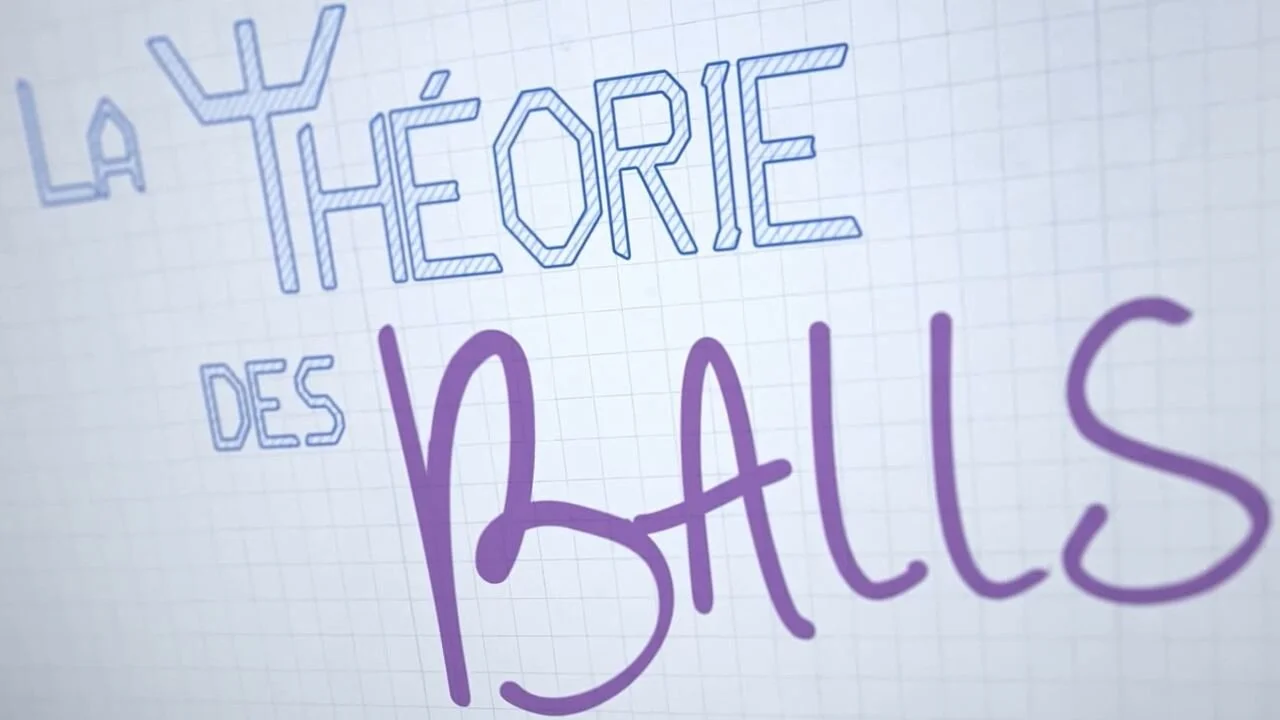 LA THÉORIE
DES BALLS